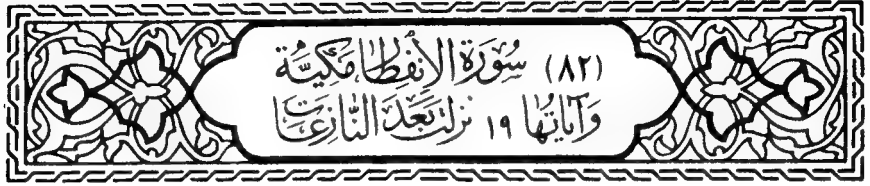 (٨٢) سُورَةُ الانفِطارِ مَكيَّة
وَآيَاتُها ١٩ نزلَت بَعدَ النَّازِعَات